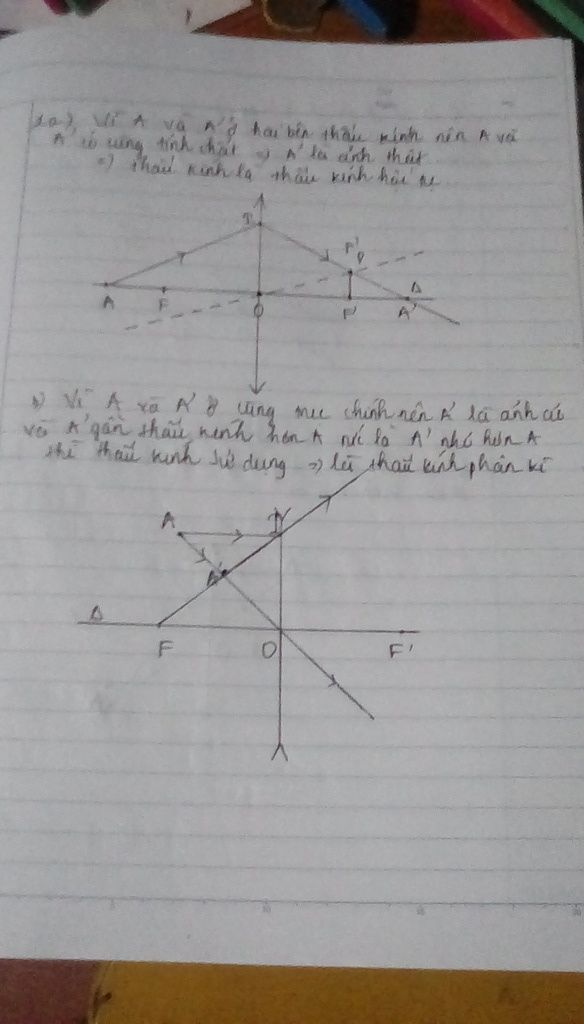 1a) Vì A và A' ở hai bên thấu kính nên A và
A' có cùng tính chất => A' là ảnh thật
=> thấu kính là thấu kính hội tụ
I
F'p
A F O F' A' Δ
b) Vì A và A' ở cùng trục chính nên A' là ảnh ảo
và A' gần thấu kính hơn A tức là A' nhỏ hơn A
thì thấu kính sử dụng => là thấu kính phân kì
A I
A'
Δ
F O F'